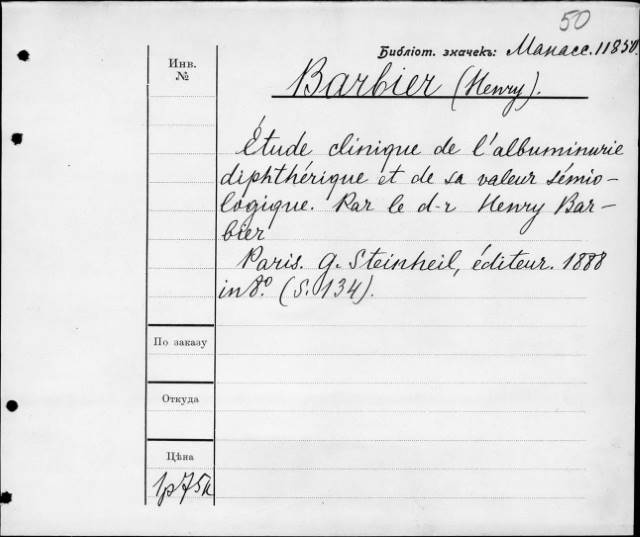 50
Библіот. значекъ: Манасс. 11850.
Инв.
№
Barbier (Henry).
Étude clinique de l'albuminurie
diphthérique et de sa valeur sémio-
logique. Par le d-r Henry Bar-
bier
Paris. G. Steinheil, éditeur. 1888
in 8.° (S. 134).
По заказу
Откуда
Цѣна
1р 75к